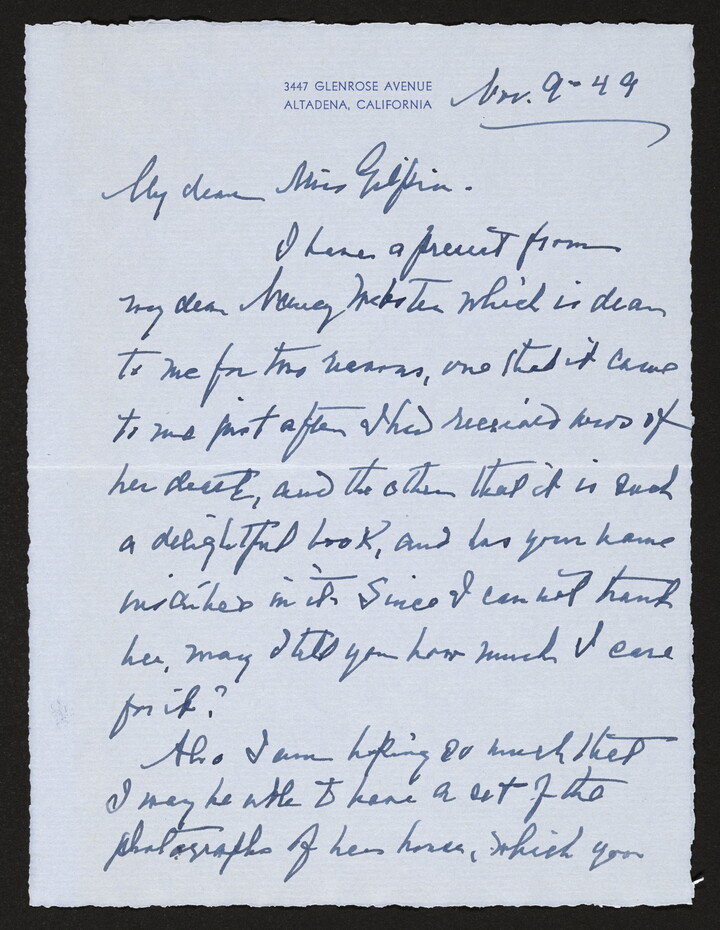 3447 GLENROSE AVENUE
ALTADENA, CALIFORNIA
Nov. 9-49
My dear Miss Gilpin.
I have a present from
my dear Nancy Webster which is dear
to me for two reasons, one that it came
to me just after I had received news of
her death, and the other that it is such
a delightful book, and has your name
inscribed in it. Since I can not thank
her, may I tell you how much I care
for it?
Also I am hoping so much that
I may be able to have a set of the
photographs of her house, which you